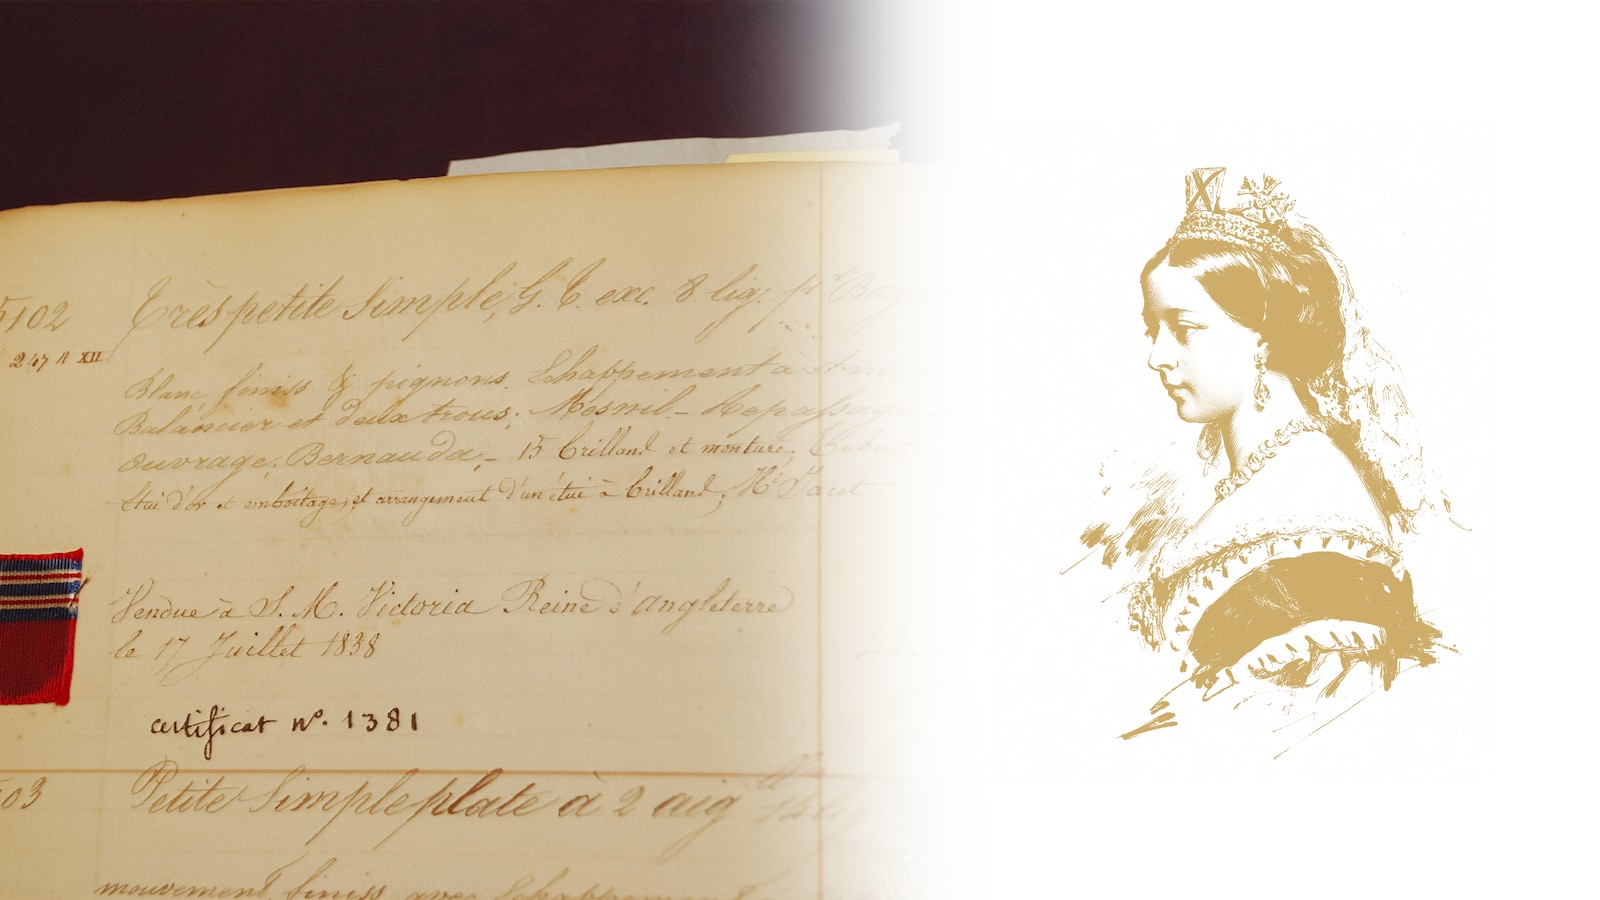 5102 Très petite Simple, G. C. exc. 8 lig: pr
247 A XII
Blanc, finiss & pignons. Echappement à
Balancier et deux trous; Mesnil - Repassage
ouvrage; Bernauda; - 15 brilland et monture;
Etui d'or et emboitage, et arrangement d'un étui à brilland; Mi Jacot
Vendue à S. M. Victoria Reine d'Angleterre
le 17 Juillet 1838
certificat no. 1381
03 Petite Simple plate à 2 aig
mouvement, finiss avec